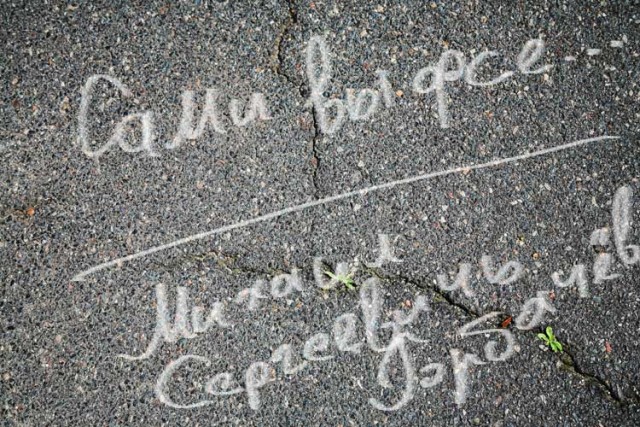 Сами вы фсе - - -
Михаил
Сергеевичь
Горбачёв